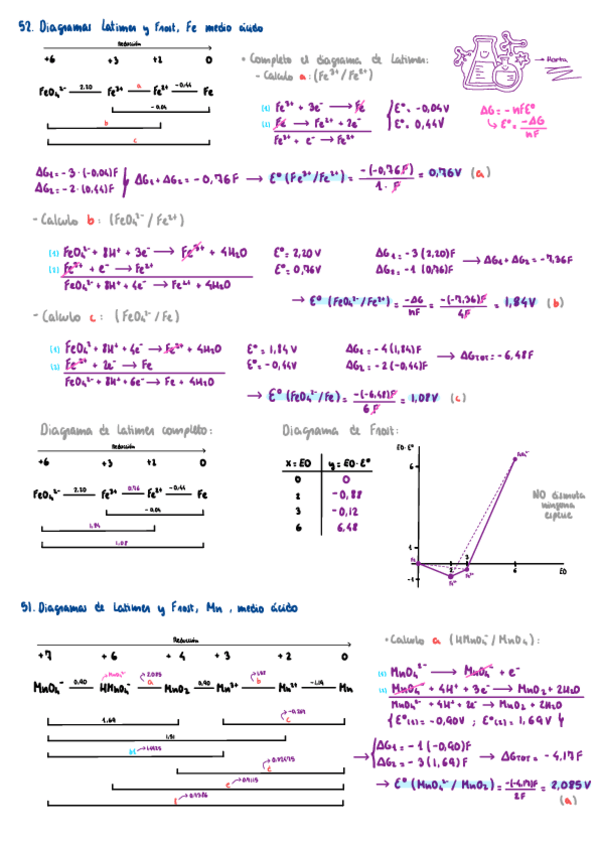 52. Diagramas Latimer y Frost, Fe medio ácido
Reducción
+6 +3 +2 0
FeO₄²⁻ 2,20 Fe³⁺ a Fe²⁺ -0,44 Fe
-0,04
b
c
• Completo el diagrama de Latimer:
- Calculo a: (Fe³⁺/Fe²⁺)
(1) Fe³⁺ + 3e⁻ → Fe { E° = -0,04V
(2) Fe → Fe²⁺ + 2e⁻ { E° = 0,44V
Fe³⁺ + e⁻ → Fe²⁺
ΔG = -nFE°
↳ E° = -ΔG/nF
ΔG₁ = -3·(-0,04)F
ΔG₂ = -2·(0,44)F
ΔG₁ + ΔG₂ = -0,76F → E° (Fe³⁺/Fe²⁺) = -(-0,76F)/1·F = 0,76V (a)
- Calculo b: (FeO₄²⁻/Fe²⁺)
(1) FeO₄²⁻ + 8H⁺ + 3e⁻ → Fe³⁺ + 4H₂O E° = 2,20V ΔG₁ = -3(2,20)F
(2) Fe³⁺ + e⁻ → Fe²⁺ E° = 0,76V ΔG₂ = -1(0,76)F → ΔG₁ + ΔG₂ = -7,36F
FeO₄²⁻ + 8H⁺ + 4e⁻ → Fe²⁺ + 4H₂O
→ E° (FeO₄²⁻/Fe²⁺) = -ΔG/nF = -(-7,36)F/4F = 1,84V (b)
- Calculo c: (FeO₄²⁻/Fe)
(1) FeO₄²⁻ + 8H⁺ + 4e⁻ → Fe²⁺ + 4H₂O E° = 1,84V ΔG₁ = -4(1,84)F
(2) Fe²⁺ + 2e⁻ → Fe E° = -0,44V ΔG₂ = -2(-0,44)F → ΔGTOT = -6,48F
FeO₄²⁻ + 8H⁺ + 6e⁻ → Fe + 4H₂O
→ E° (FeO₄²⁻/Fe) = -(-6,48)F/6F = 1,08V (c)
Diagrama de Latimer completo:
Reducción
+6 +3 +2 0
FeO₄²⁻ 2,20 Fe³⁺ 0,76 Fe²⁺ -0,44 Fe
-0,04
1,84
1,08
Diagrama de Frost:
x = EO y = EO·E°
0 0
2 -0,88
3 -0,12
6 6,48
EO·E°
6
1
-1
2
3
6
EO
Fe
Fe²⁺
Fe³⁺
FeO₄²⁻
NO dismuta
ninguna
especie
51. Diagramas de Latimer y Frost, Mn, medio ácido
Reducción
+7 +6 +4 +3 +2 0
MnO₄⁻ 0,90 HMnO₄⁻ a MnO₂ 0,90 Mn³⁺ b Mn²⁺ -1,19 Mn
MnO₄²⁻
2,085
1,69
c
1,51
d
e
• Calculo a (HMnO₄⁻/MnO₂):
(1) MnO₄²⁻ → MnO₄⁻ + e⁻
(2) MnO₄⁻ + 4H⁺ + 3e⁻ → MnO₂ + 2H₂O
MnO₄²⁻ + 4H⁺ + 2e⁻ → MnO₂ + 2H₂O
{ E°(1) = -0,90V ; E°(2) = 1,69V }
→ { ΔG₁ = -1(-0,90)F
ΔG₂ = -3(1,69)F → ΔGTOT = -4,17F
→ E° (MnO₄²⁻/MnO₂) = -(-4,17)F/2F = 2,085V
(a)